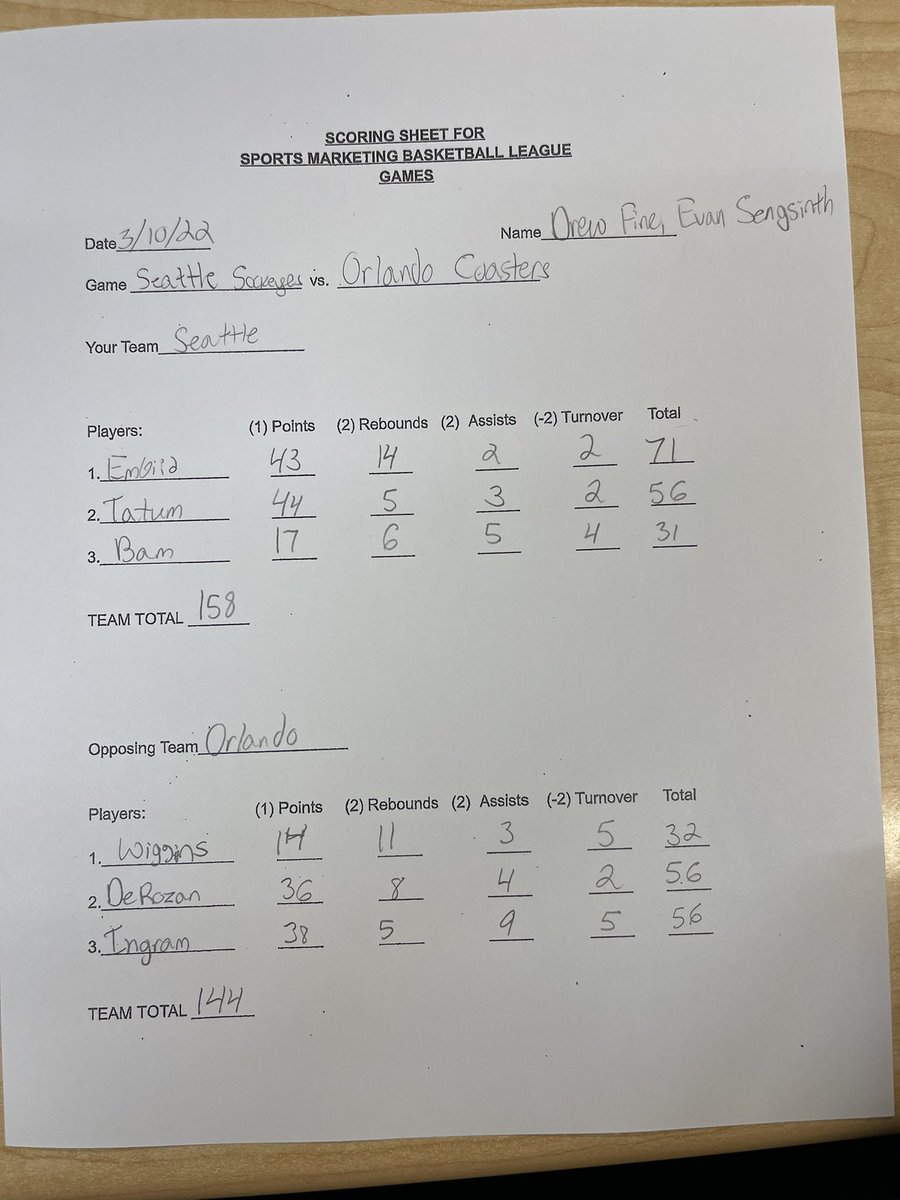 SCORING SHEET FOR
SPORTS MARKETING BASKETBALL LEAGUE
GAMES
Date 3/10/22 Name Drew Fine, Evan Sengsinth
Game Seattle Sockeyes vs. Orlando Coasters
Your Team Seattle
Players: (1) Points (2) Rebounds (2) Assists (-2) Turnover Total
1. Embiid 43 14 2 2 71
2. Tatum 44 5 3 2 56
3. Bam 17 6 5 4 31
TEAM TOTAL 158
Opposing Team Orlando
Players: (1) Points (2) Rebounds (2) Assists (-2) Turnover Total
1. Wiggins 14 11 3 5 32
2. DeRozan 36 8 4 2 56
3. Ingram 38 5 9 5 56
TEAM TOTAL 144